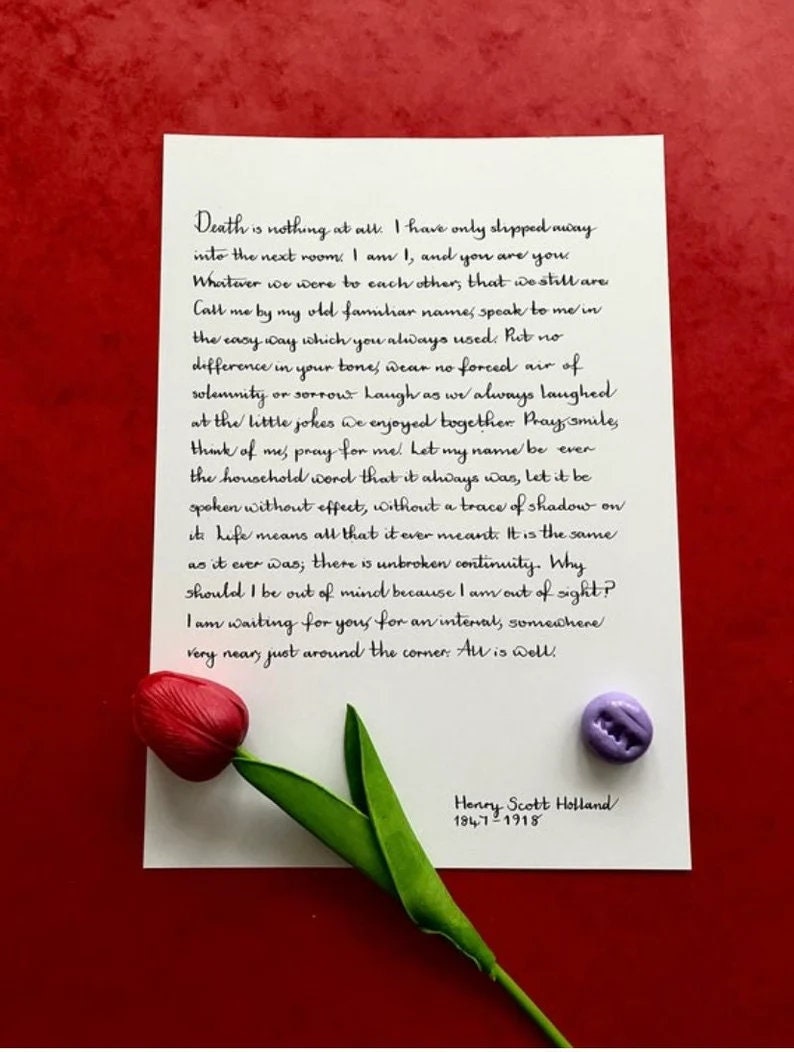 Death is nothing at all. I have only slipped away
into the next room. I am I, and you are you.
Whatever we were to each other, that we still are.
Call me by my old familiar name, speak to me in
the easy way which you always used. Put no
difference in your tone, wear no forced air of
solemnity or sorrow. Laugh as we always laughed
at the little jokes we enjoyed together. Pray, smile,
think of me, pray for me. Let my name be ever
the household word that it always was, let it be
spoken without effect, without a trace of shadow on
it. Life means all that it ever meant. It is the same
as it ever was; there is unbroken continuity. Why
should I be out of mind because I am out of sight?
I am waiting for you, for an interval, somewhere
very near, just around the corner. All is well.
Henry Scott Holland
1847-1918